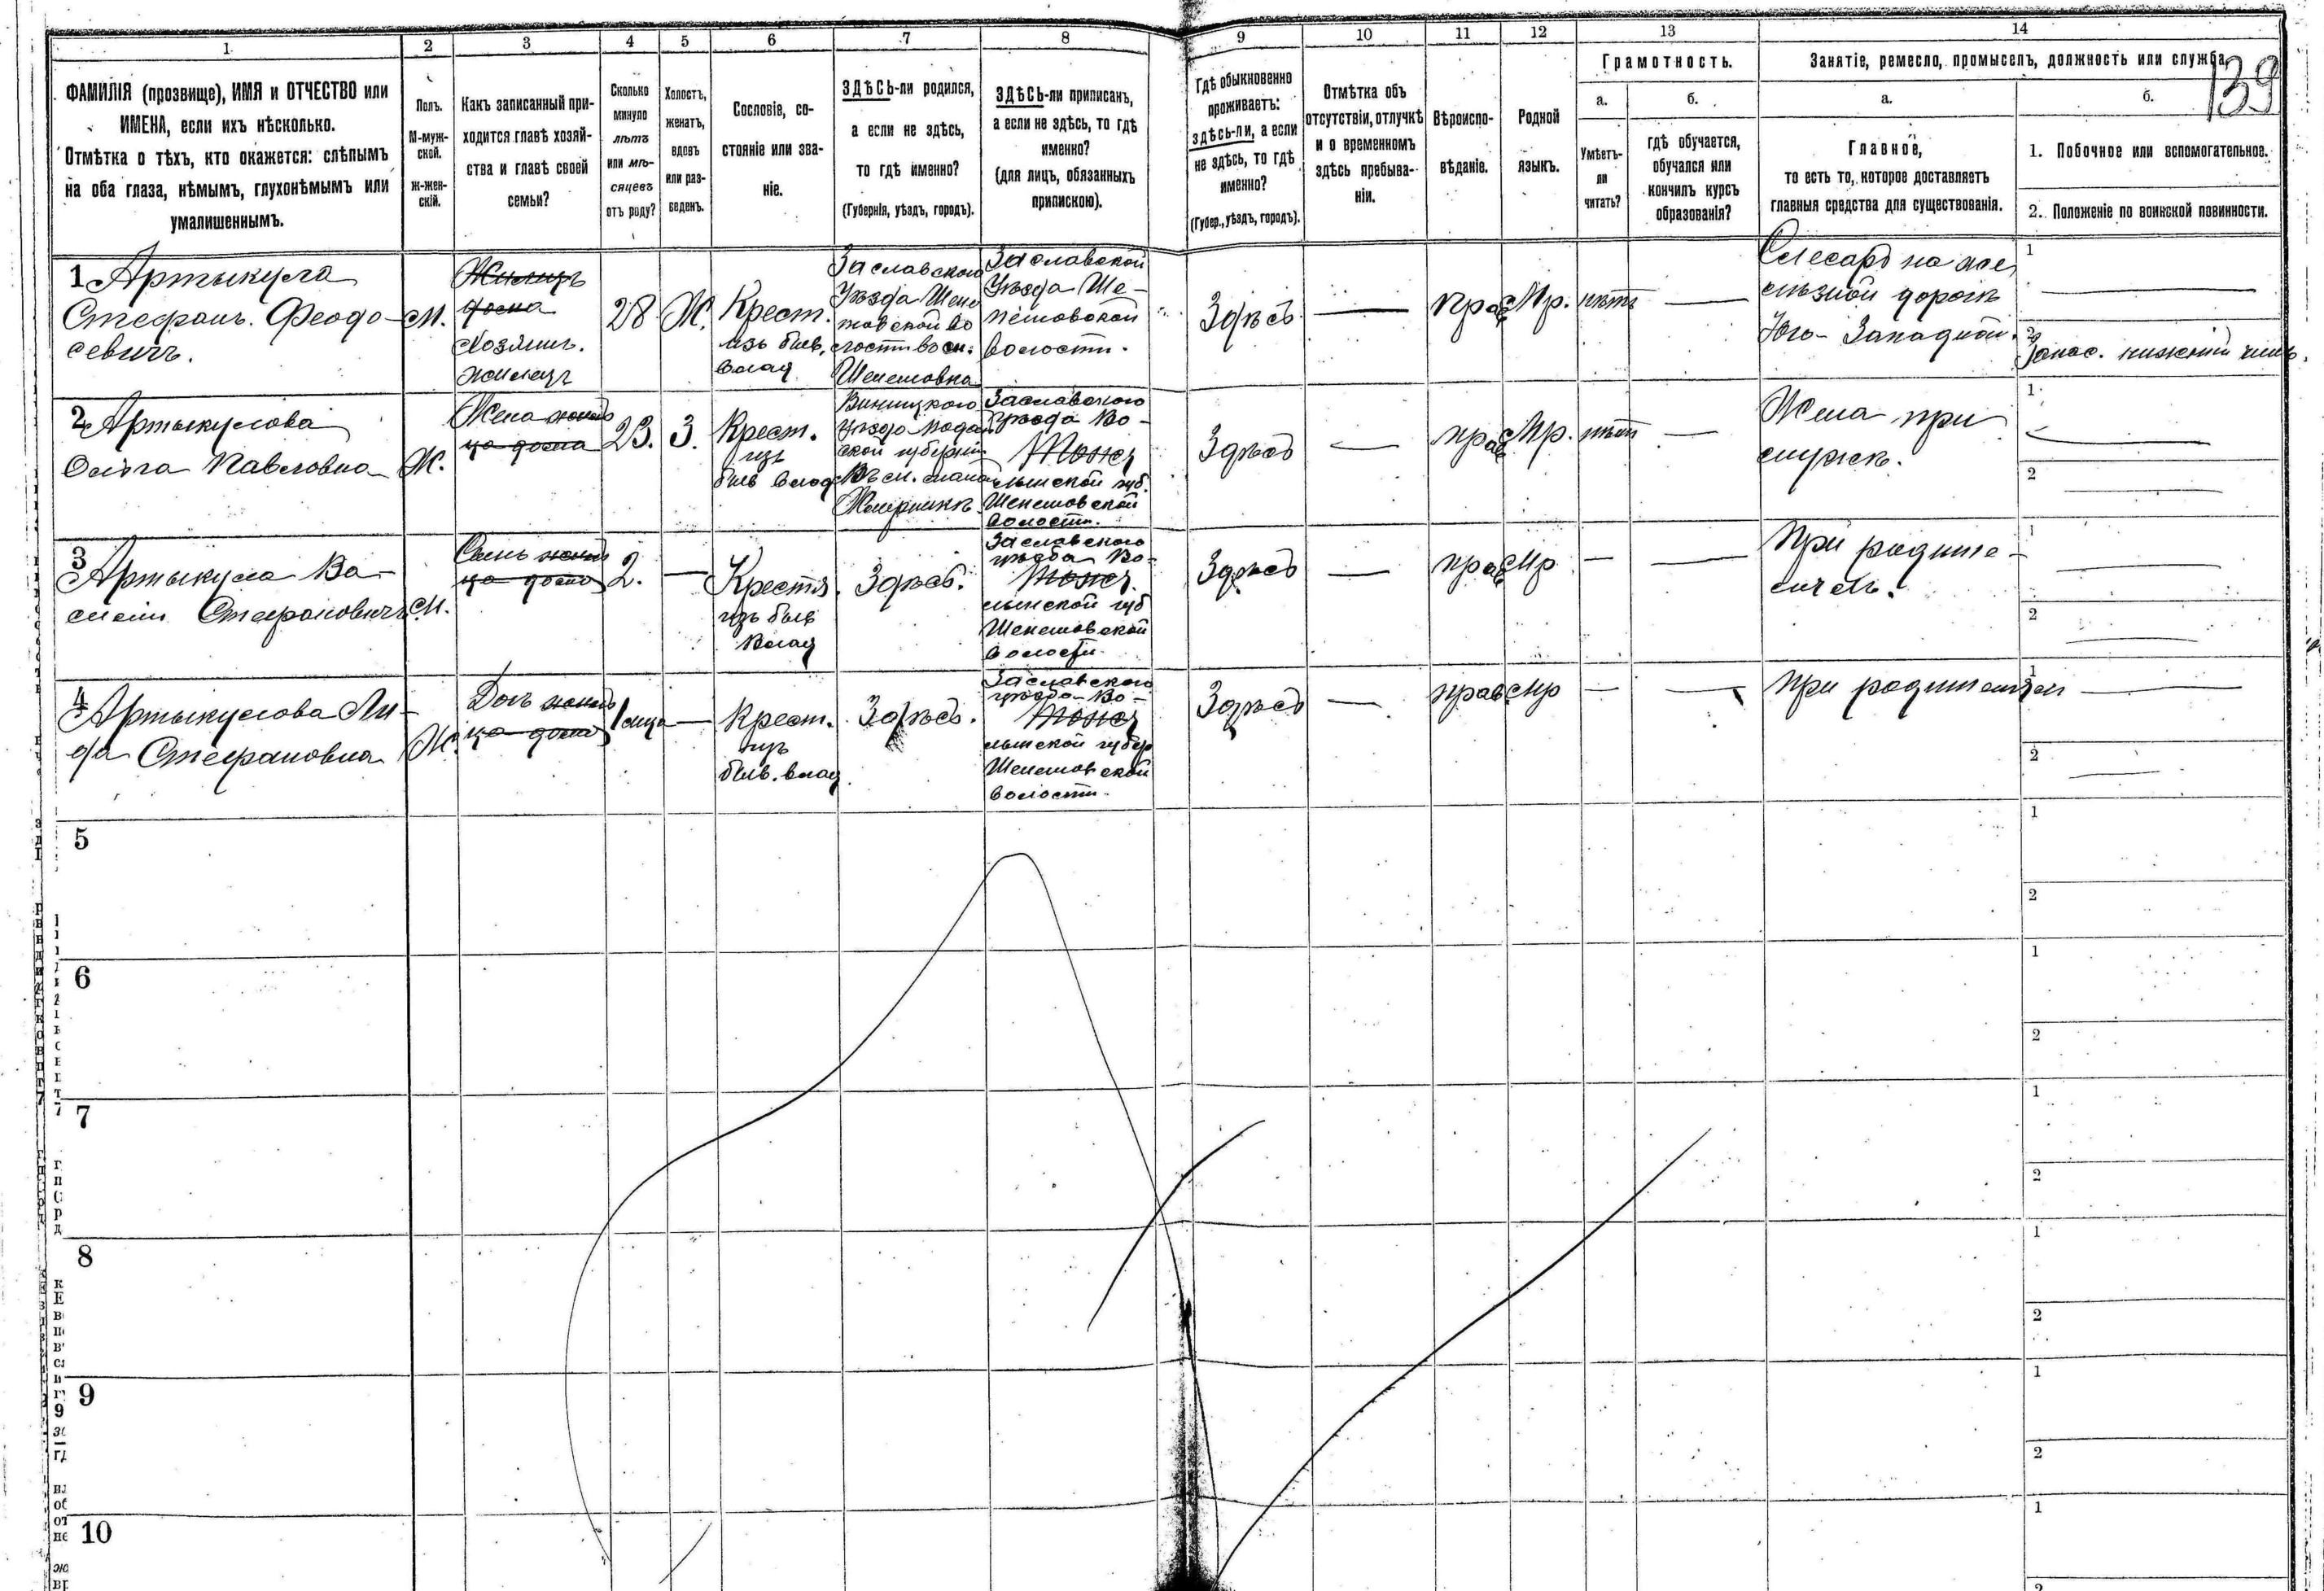 1
2
3
4
5
6
7
8
9
10
11
12
13
14
139
ФАМИЛІЯ (прозвище), ИМЯ и ОТЧЕСТВО или
ИМЕНА, если ихъ нѣсколько.
Отмѣтка о тѣхъ, кто окажется: слѣпымъ
на оба глаза, нѣмымъ, глухонѣмымъ или
умалишеннымъ.
Полъ.
М-муж-
ской.
Ж-жен-
скій.
Какъ записанный при-
ходится главѣ хозяй-
ства и главѣ своей
семьи?
Сколько
минуло
лѣтъ
или мѣ-
сяцевъ
отъ роду?
Холостъ,
женатъ,
вдовъ
или раз-
веденъ.
Сословіе, со-
стояніе или зва-
ніе.
ЗДѢСЬ-ли родился,
а если не здѣсь,
то гдѣ именно?
(Губернія, уѣздъ, городъ).
ЗДѢСЬ-ли приписанъ,
а если не здѣсь, то гдѣ
именно?
(для лицъ, обязанныхъ
припискою).
Гдѣ обыкновенно
проживаетъ:
здѣсь-ли, а если
не здѣсь, то гдѣ
именно?
(Губер., уѣздъ, городъ).
Отмѣтка объ
отсутствіи, отлучкѣ
и о временномъ
здѣсь пребыва-
ніи.
Вѣроиспо-
вѣданіе.
Родной
языкъ.
Грамотность.
а.
Умѣетъ-
ли
читать?
б.
гдѣ обучается,
обучался или
кончилъ курсъ
образованія?
Занятіе, ремесло, промыселъ, должность или служба.
а.
Главное,
то есть то, которое доставляетъ
главныя средства для существованія.
б.
1. Побочное или вспомогательное.
2. Положеніе по воинской повинности.
1 Артыкула
Стефанъ Феодо-
севичъ.
М.
Жилецъ
дома
Хозяинъ.
жилецъ
28
Ж.
Крест.
изъ быв.
влад
Заславского
Уѣзда Шепе
товской во
лости въ м.
Шепетовка
Заславской
Уѣзда Ше-
петовской
волости.
Здѣсь
—
прав
Мр.
нѣтъ
—
Слесарь на же
лѣзной дорогѣ
Юго-Западной.
1
2
Запас. нижній чинъ.
2 Артыкулова
Ольга Павловна
Ж.
Жена жиль
ца дома
23.
З.
Крест.
изъ
быв влад
Винницкого
уѣзда Подол
ской губерніи
Въ м. стан
Жмеринкѣ
Заславского
уѣзда Во-
Тоже
лынской губ.
Шепетовской
волости.
Здѣсь
—
прав
Мр.
нѣт
—
Жена при
мужѣ.
1
2
3
Артыкула Ва-
силій Стефановичъ
М.
Сынъ жиль
ца дома
2.
—
Крестя.
изъ быв
влад
Здѣсь.
Заславского
уѣзда Во-
Тоже
лынской губ
Шепетовской
волости.
Здѣсь
—
прав
Мр
—
—
При родите-
лях.
1
2
4
Артыкулова Ли-
да Стефановна
Ж.
Дочь жиль
ца дома
—
Крест.
изъ
быв. влад
Здѣсь.
Заславского
уѣзда Во-
Тоже
лынской губер
Шепетовской
волости.
Здѣсь
—
прав
Мр
—
—
При родителях
1
2
5
1
2
6
1
2
7
1
2
8
1
2
9
1
2
10
1
2